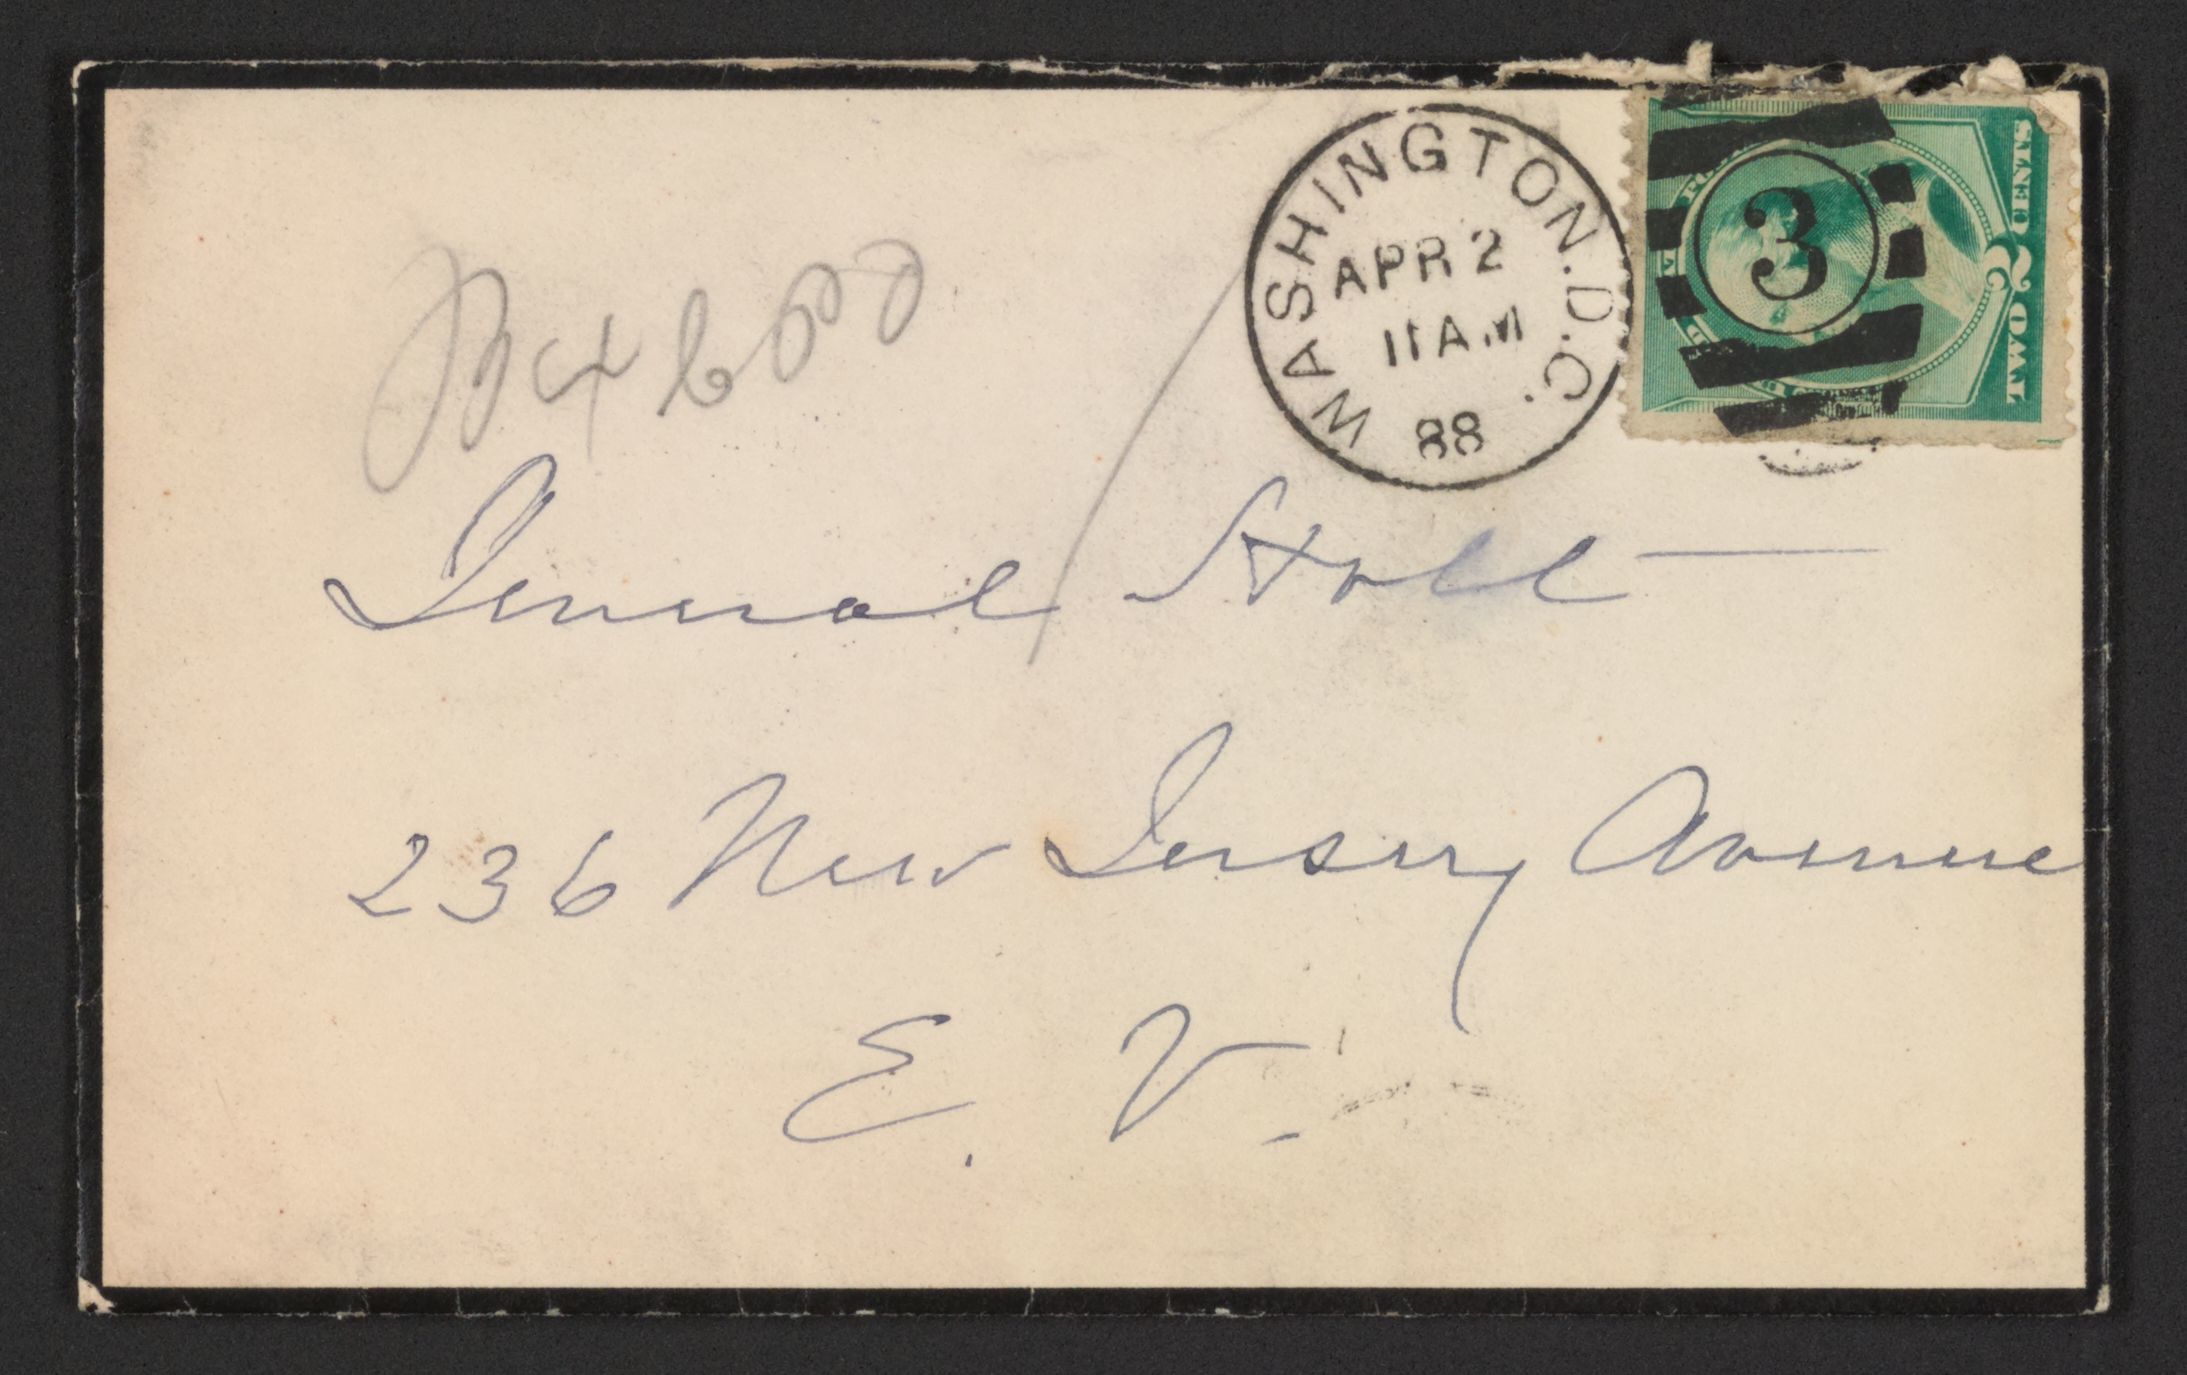 WASHINGTON. D.C.
APR 2
11 AM
88
3
TWO 2 CENTS
General Holt
236 New Jersey Avenue
E. V.